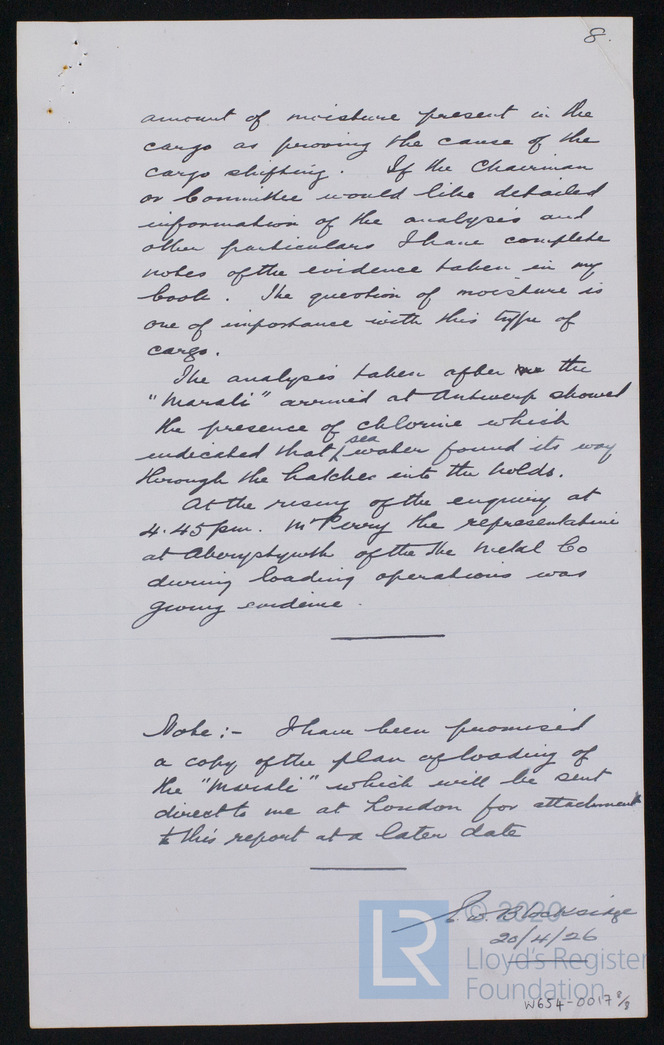 8.
amount of moisture present in the
cargo as proving the cause of the
cargo shifting. If the Chairman
or Committee would like detailed
information of the analysis and
other particulars I have complete
notes of the evidence taken in my
book. The question of moisture is
one of importance with this type of
cargo.
The analysis taken after the
"Marali" arrived at Antwerp showed
the presence of chlorine which
indicated that sea water found its way
through the hatches into the holds.
At the rising of the enquiry at
4.45pm. Mr Perry the representative
at Aberystwyth of the the Metal Co
during loading operations was
giving evidence.
Note:- I have been promised
a copy of the plan of loading of
the "Marali" which will be sent
direct to me at London for attachment
to this report at a later date
W. Blocksidge
20/4/26
© 2020
LR
Lloyd's Register
Foundation
W654-0017 8/8